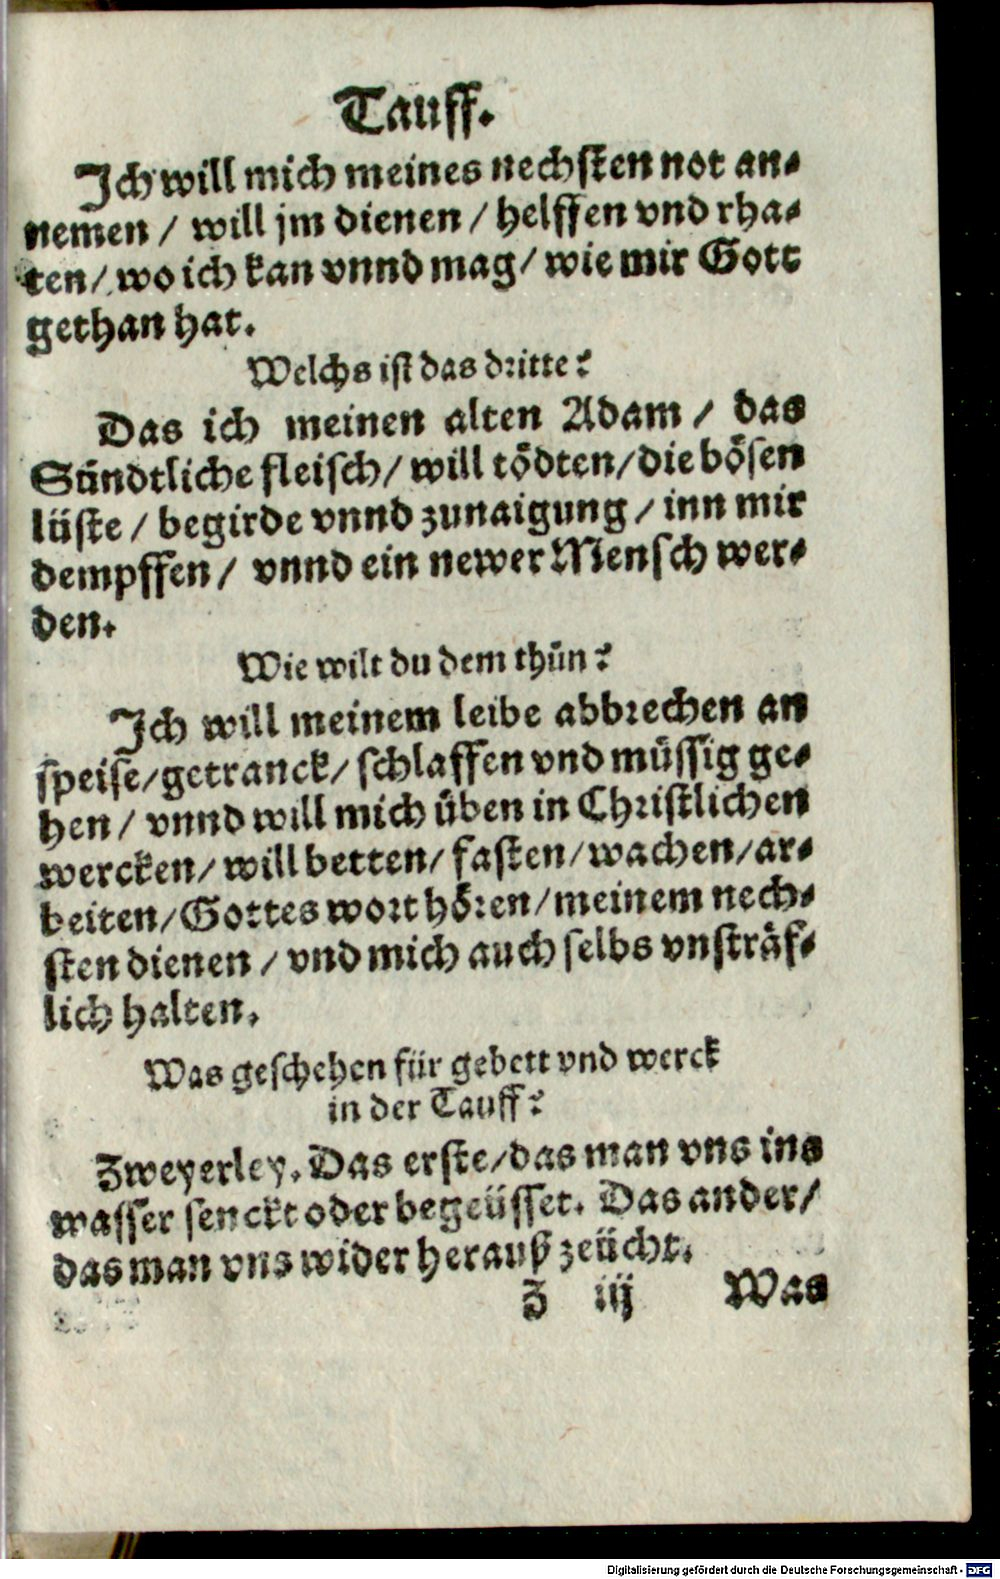 Tauff.
Ich will mich meines nechsten not an-
nemen / will jm dienen / helffen vnd rha-
ten / wo ich kan vnnd mag / wie mir Gott
gethan hat.
Welchs ist das dritte?
Das ich meinen alten Adam / das
Sündtliche fleisch / will tödten / die bösen
lüste / begirde vnnd zunaigung / inn mir
dempffen / vnnd ein newer Mensch wer-
den.
Wie wilt du dem thün?
Ich will meinem leibe abbrechen an
speise / getranck / schlaffen vnd müssig ge-
hen / vnnd will mich üben in Christlichen
wercken / will betten / fasten / wachen / ar-
beiten / Gottes wort hören / meinem nech-
sten dienen / vnd mich auch selbs vnsträf-
lich halten.
Was geschehen für gebett vnd werck
in der Tauff?
Zweyerley. Das erste / das man vns ins
wasser senckt oder begeüsset. Das ander /
das man vns wider herauß zeücht.
Z iij Was
Digitalisierung gefördert durch die Deutsche Forschungsgemeinschaft - DFG